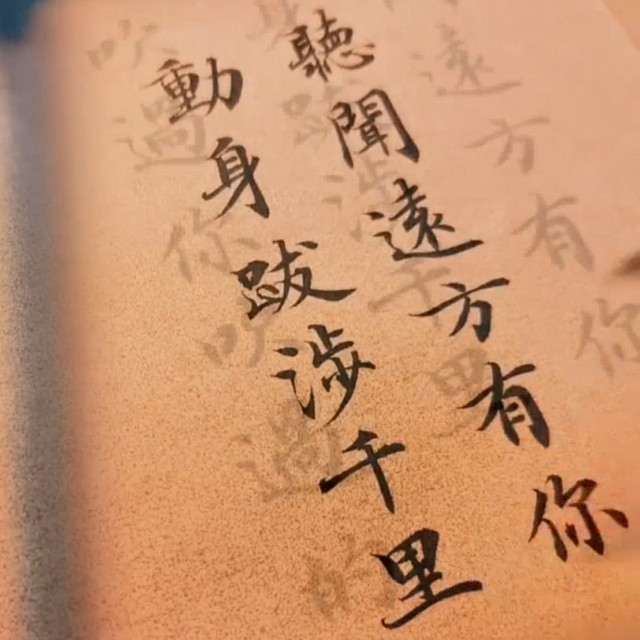 聽聞遠方有你
動身跋涉千里